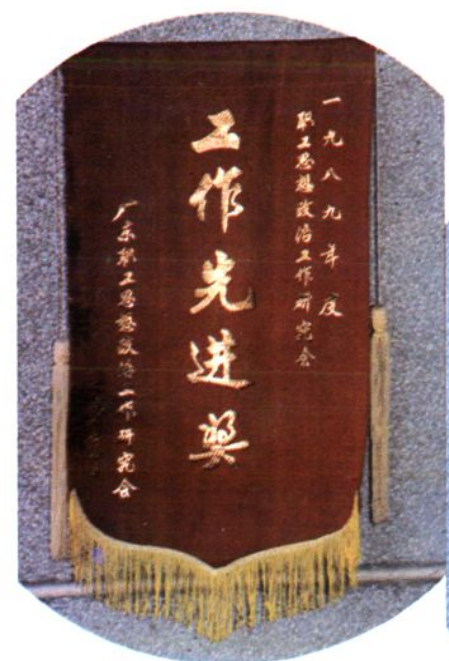 一九八九年度
职工思想政治工作研究会
工作先进奖
广东职工思想政治工作研究会